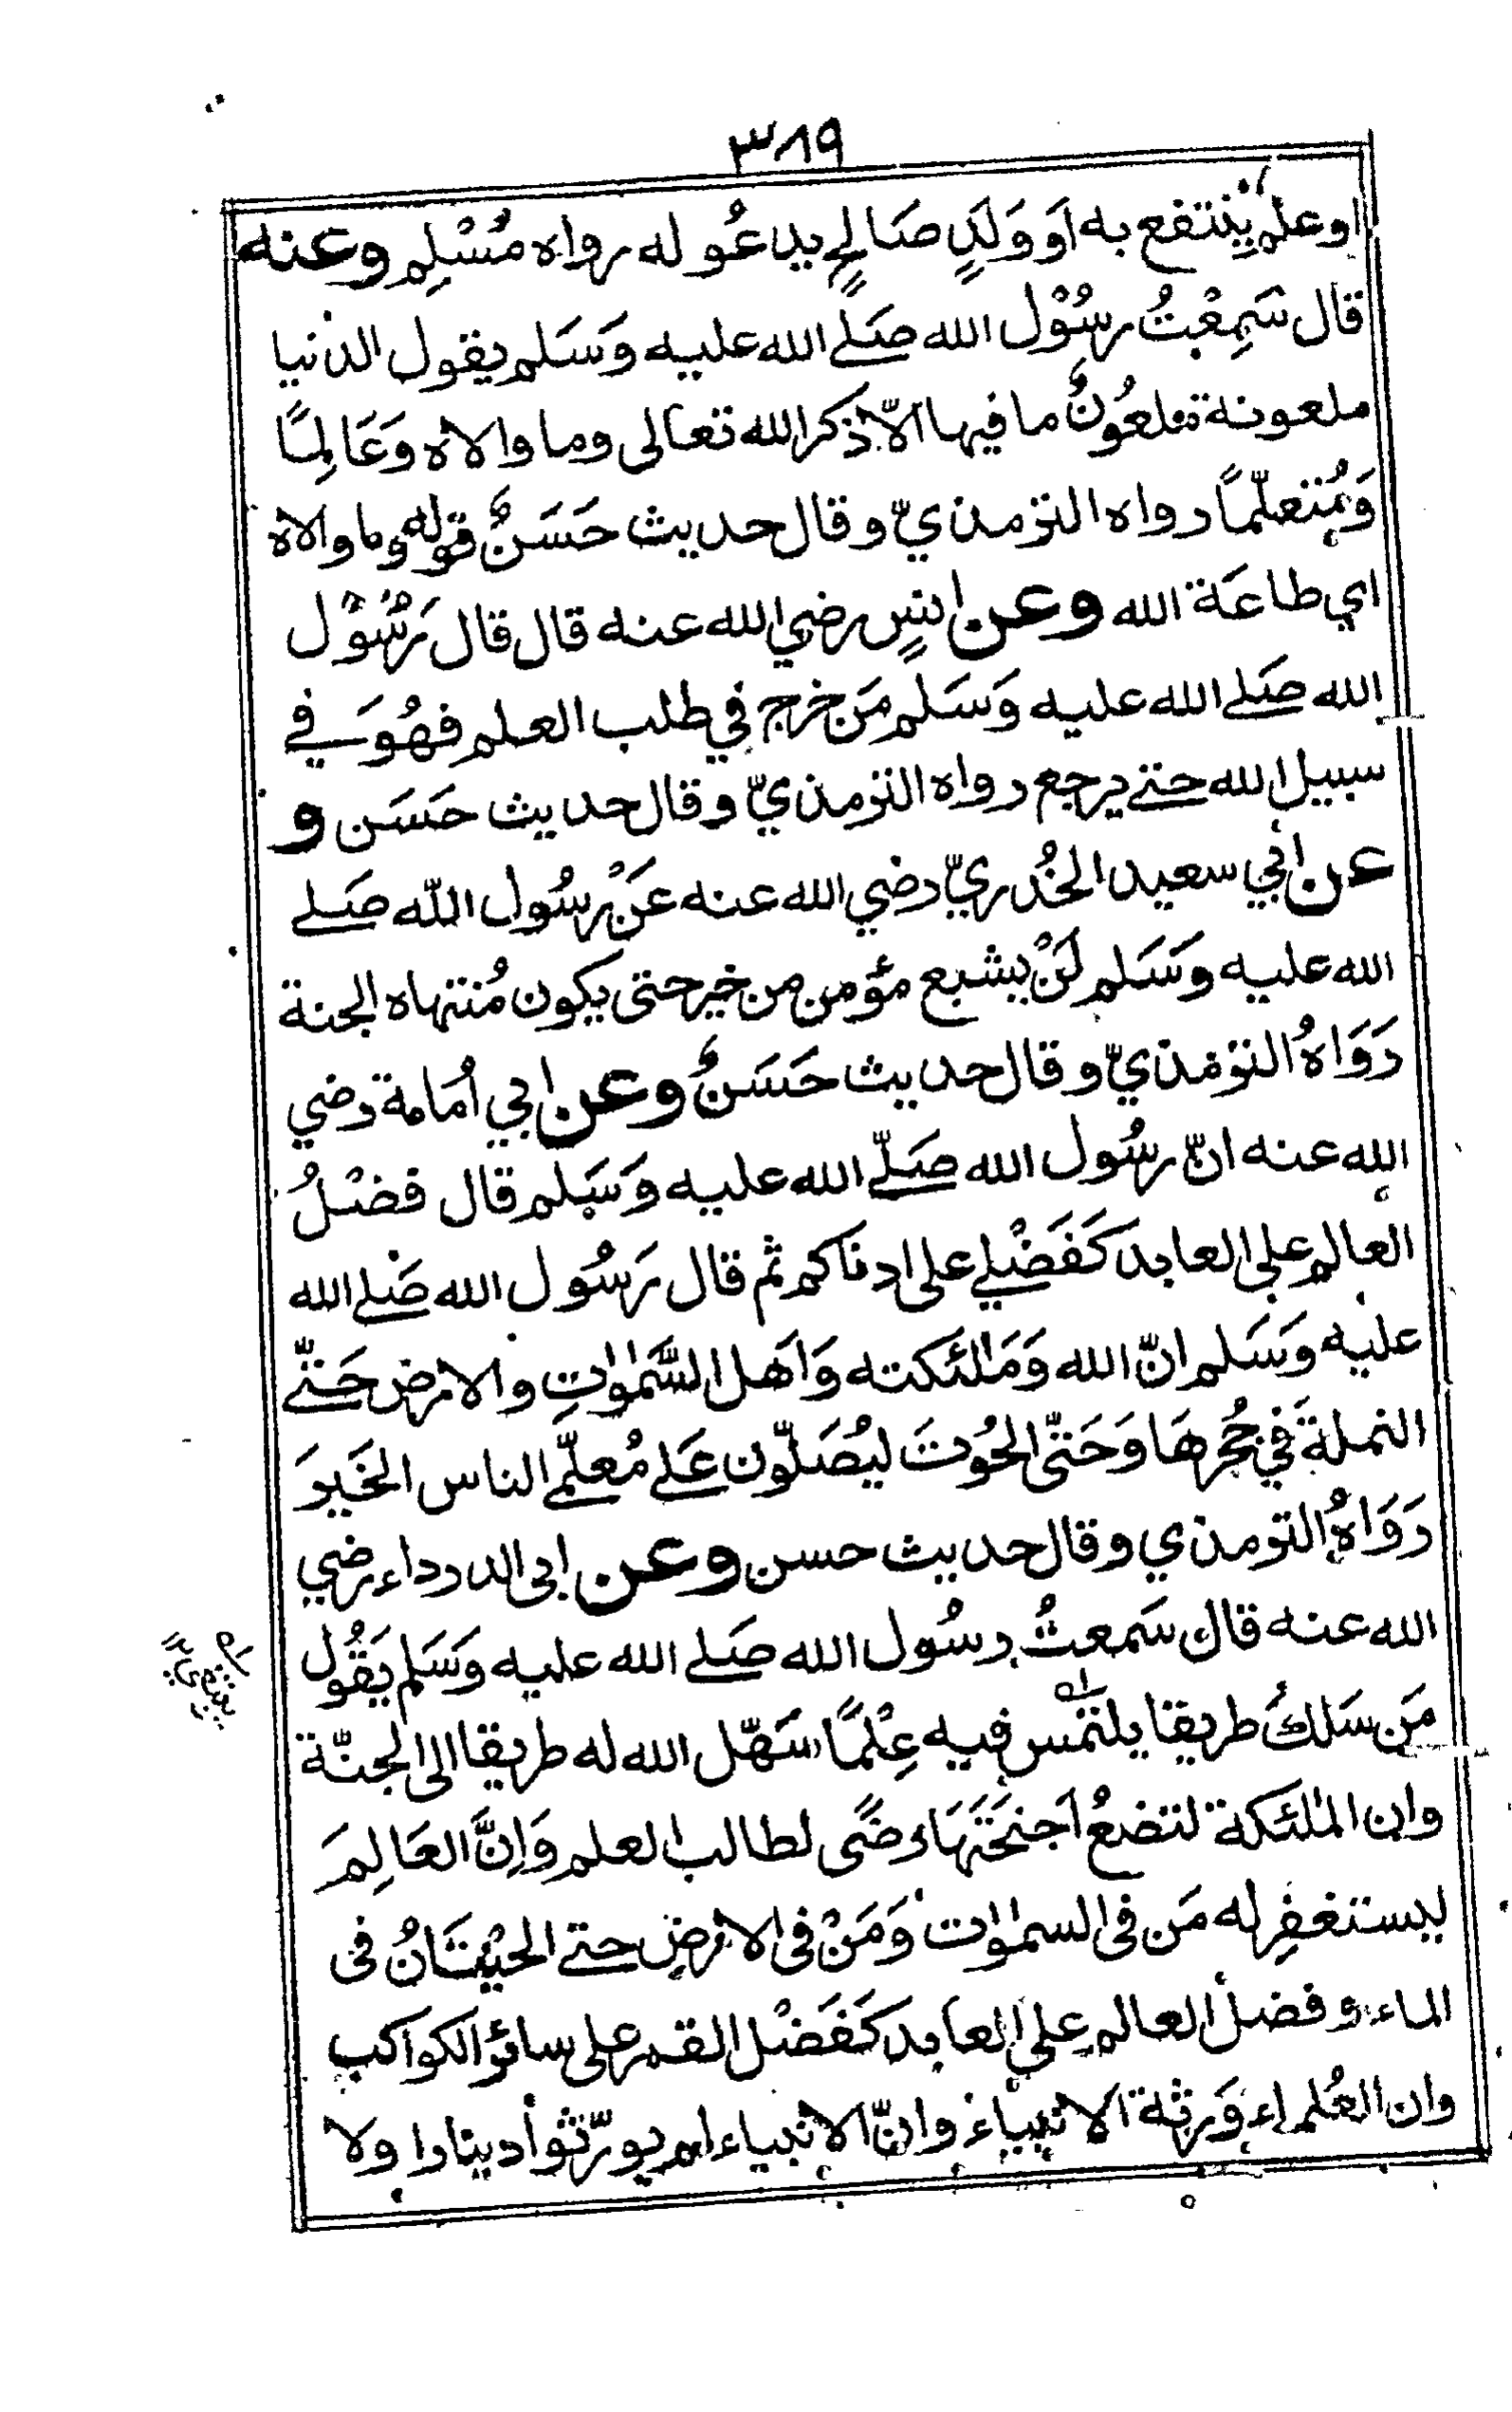 ٣٨٩
او علم ينتفع به اَو وَلَدٍ صَالحٍ يدعُو له رواه مُسْلِم وعنه
قال سَمِعْتُ رسُوْل الله صَلے الله عليه وَسَلم يقول الدنيا
ملعونة ملعُونٌ ما فيها الّا ذكر الله تعالى وما والاه وَعَالِمًا
وَمُتعلّمًا رواه الترمذيّ وقال حديث حَسَنٌ قوله وما والاه
اي طاعَة الله وعن انسٍ رضي الله عنه قال قال رَسُوْل
الله صَلے الله عليه وَسَلم مَن خرج في طلب العلم فهُوَ في
سبيل الله حتے يرجع رواه الترمذيّ وقال حديث حَسَن و
عن ابي سعيد الخُدريّ رضي الله عنه عَنْ رسُول اللّه صَلے
الله عليه وسَلم لَنْ يشبع مؤمن من خير حتى يكون مُنتهاه الجنة
رَوَاهُ الترمذيّ وقال حديث حَسَنٌ وعن ابي اُمَامة رضي
الله عنه انّ رسُول الله صَلّے الله عليه وَسَلم قال فضْلُ
العالم على العابد كَفَضْلِي على ادناكم ثم قال رَسُول الله صَلے الله
عليه وَسَلم انّ الله وَمَلٰئكته وَاَهل السَّمٰوٰتِ والارض حَتّے
النملةَ في جُحرهَا وَحَتّى الحُوتَ ليُصَلّون عَلے مُعلّمے الناس الخَيرَ
رَوَاهُ الترمذي وقال حديث حسن وعن ابى الدرداء رضي
الله عنه قال سَمعتُ رسُول الله صَلے الله عليه وَسَلم يَقُول
مَن سَلكَ طريقا يلتمس فيه عِلْمًا سَهّل الله له طريقا الى الجنّة
وان الملٰئكة لتضعُ اَجنحَتَهَا رضًى لطالب العلم وَاِنَّ العَالِمَ
ليستغفر له مَن فى السمٰوٰت وَمَنْ فى الارض حتے الحيْتَانُ فى
الماء وفضل العالم على العابد كَفَضْل القمر على سائر الكواكب
وان العُلماء وَرثة الانبياء وانّ الانبياء لم يورّثوا دينارا ولا